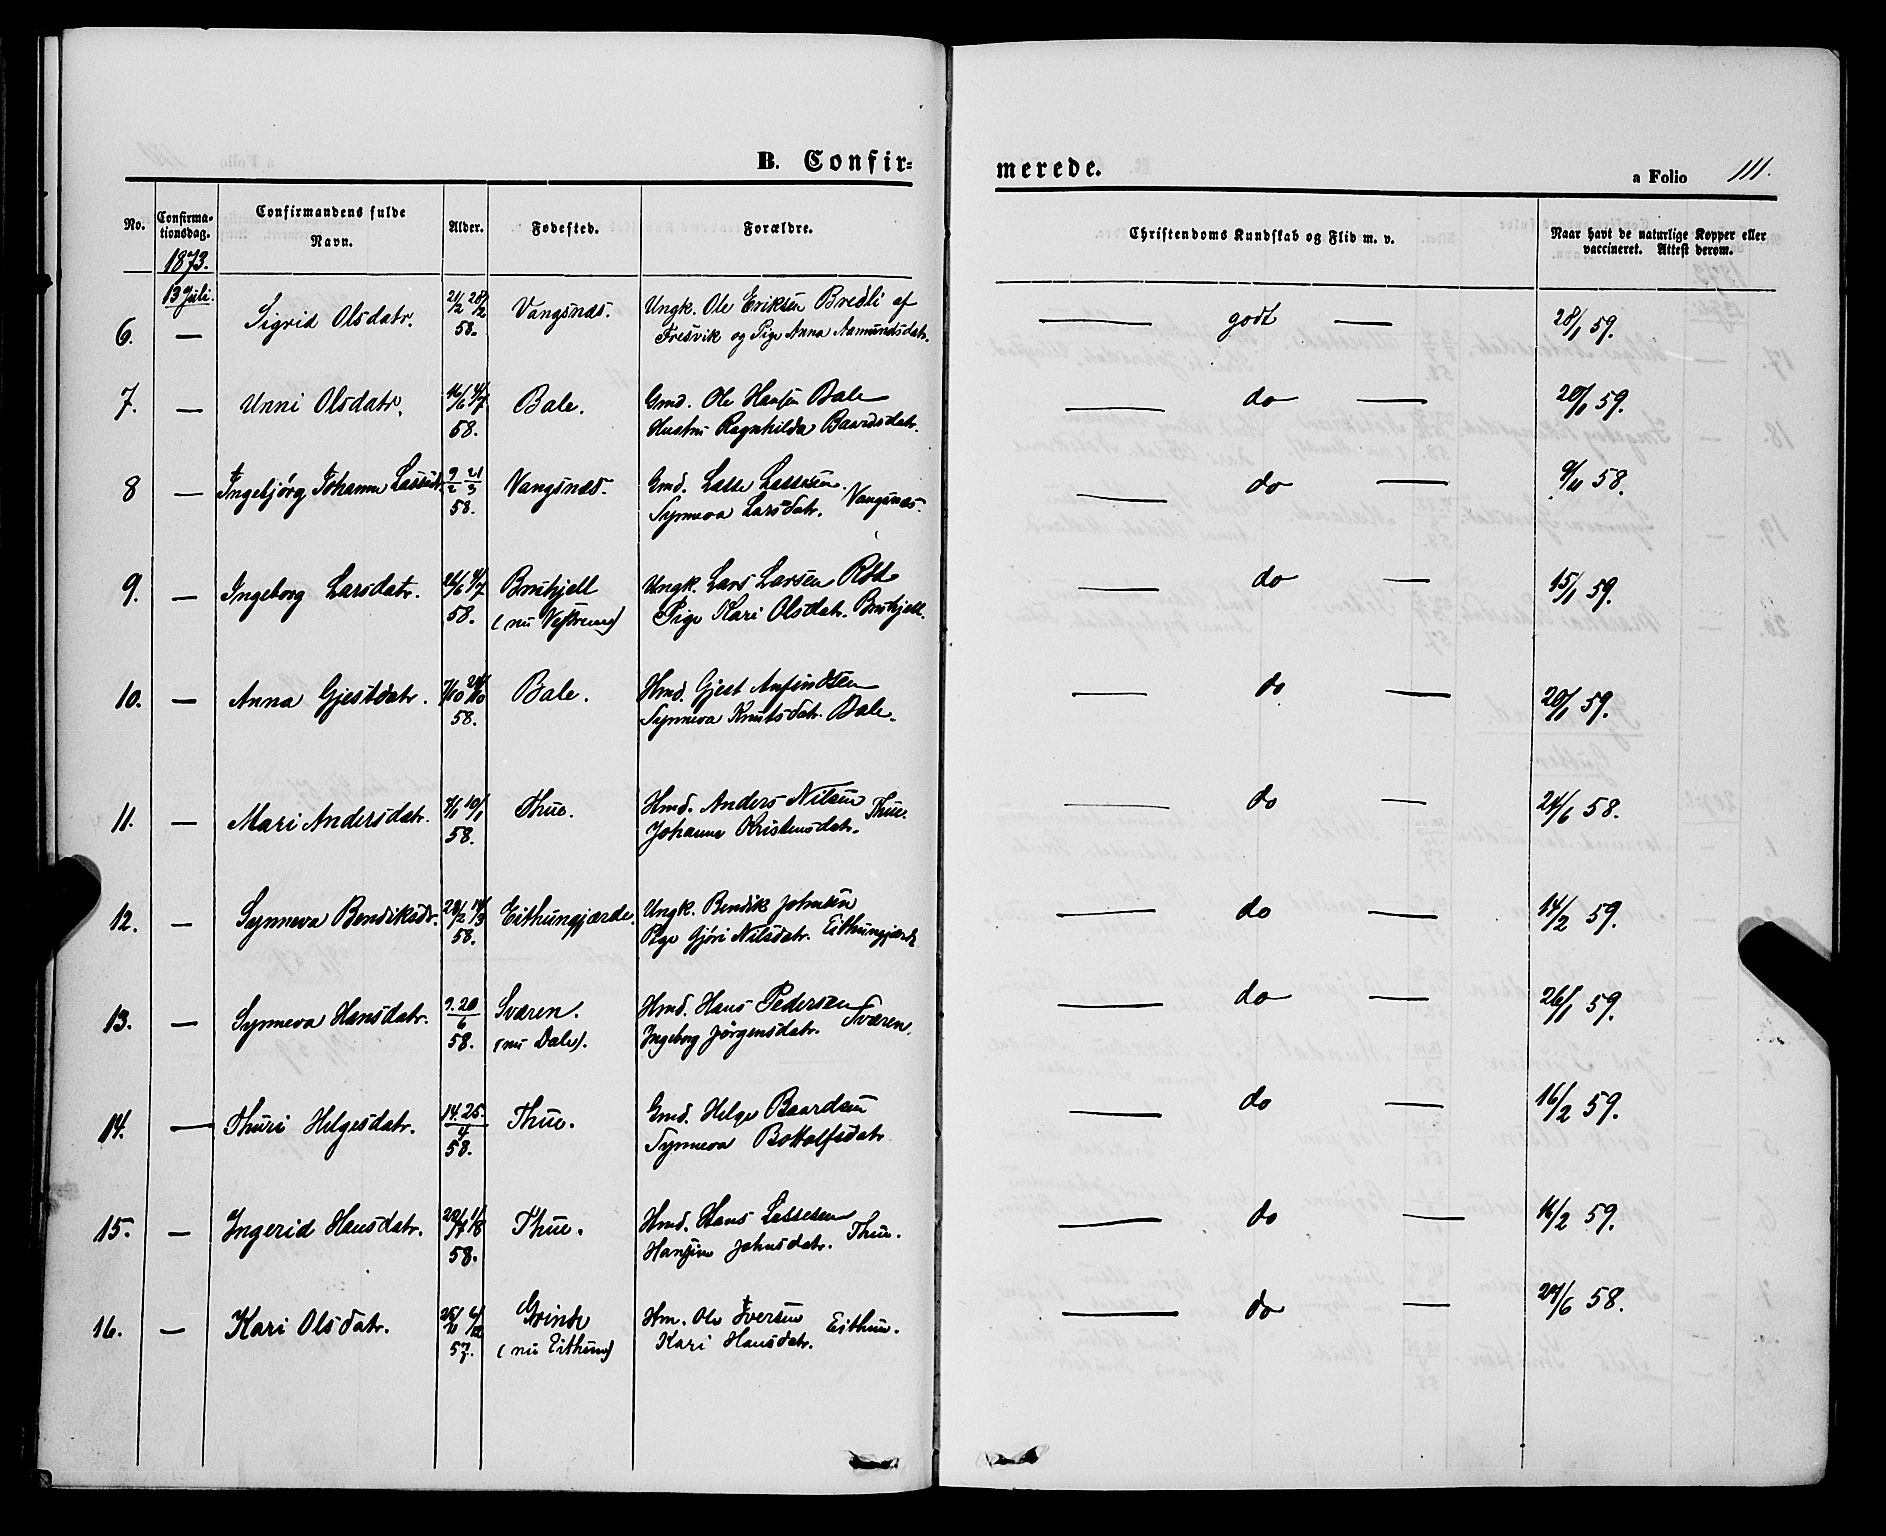 B. Confir-
merede.
a Folio 111.
No. Confirmationsdag. Confirmandens fulde Navn. Alder. Fødested. Forældre. Christendoms Kundskab og Flid m. v. Naar havt de naturlige Kopper eller vaccineret. Attest derom.
1873.
13 Juli.
6. — Sigrid Olsdatr. 21/2 28/2 58. Vangsnæs. Ungk. Ole Eriksen Bredli af
Fresvik og Pige Anna Aamundsdatr. — godt — 28/1 59.
7. — Unni Olsdatr. 16/6 4/7 58. Bale. Gmd. Ole Hansen Bale
Hustru Ragnhilda Baardsdatr. — do — 20/1 59.
8 — Ingebjørg Johanne Lassed. 9/2 21/3 58. Vangsnæs. Gmd. Lasse Lassesen
Synneva Larsdatr. Vangsnæs. — do — 9/11 58.
9. — Ingeborg Larsdatr. 58. (nu Vestrem) Ungk. Lars Larsen
Pige Kari Olsdatr. — do — 15/1 59.
10. — Anna Gjestdatr. 7/10 24/10 58. Bale. Hmd. Gjest Anfindsen
Synneva Knutsdatr. Bale. — do — 20/1 59.
11. — Mari Andersdatr. 4/1 10/1 58. Thue. Hmd. Anders Nilsen
Johanne Kristensdatr. Thue. — do — 24/6 58.
12. — Synneva Bendiksdr. 58. Eithungjærde. Ungk. Bendik Johnsen
Pige Gjøri Nilsdatr. Eithungjærde — do — 14/2 59.
13. — Synneva Hansdatr. 9. 20/6 58. Sværen. (nu Dale). Hmd. Hans Pedersen
Ingeborg Jørgensdatr. Sværen. — do — 26/1 59.
14. — Thuri Helgesdatr. 14. 25./4 58. Thue. Gmd. Helge Baardsen
Synneva Bottolfsdatr — do — 16/2 59.
15. — Ingerid Hansdatr. 58. Thue. Hmd. Hans Lassesen
Hansine Johnsdatr. Thue. — do — 16/2 59.
16. — Kari Olsdatr. 57. Grinde (nu Eithun) Hm. Ole Iversen
Kari Hansdatr. Eithun. — do — 24/6 58.